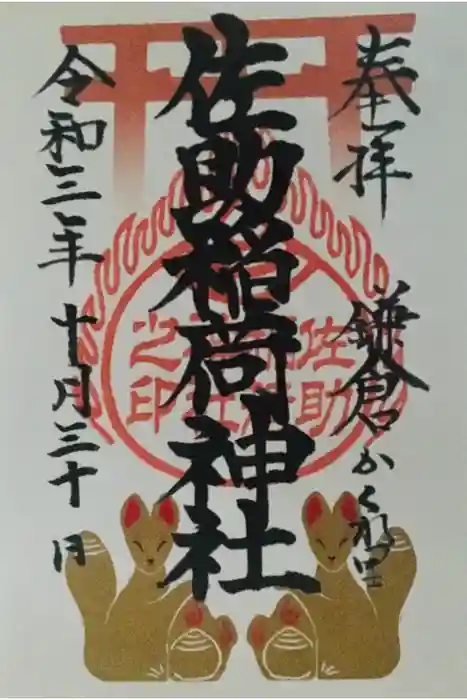 奉拝
鎌倉かくれ里
佐助稲荷神社
佐助稲荷神社之印
令和三年十月三十日